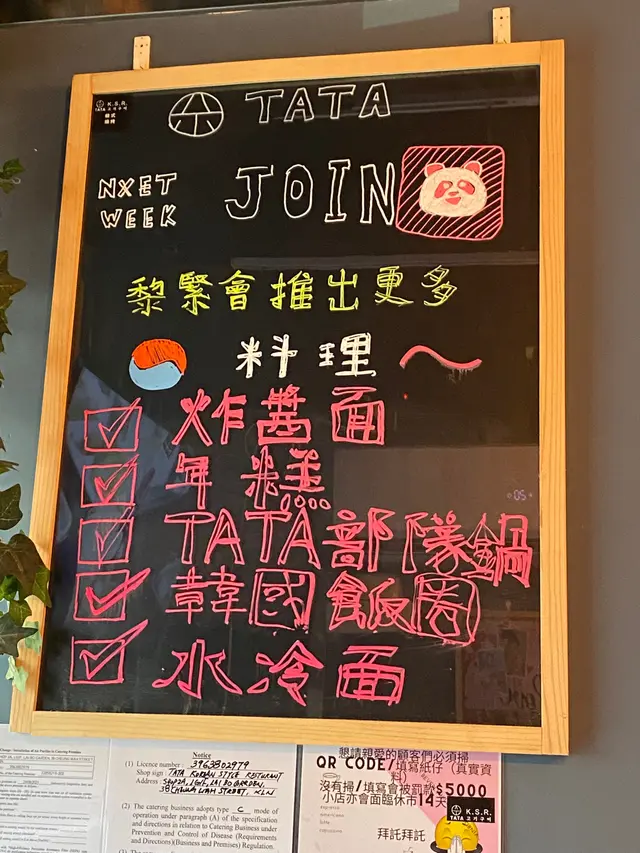 K.S.R.
TATA 고기구이
韓式
燒烤
TATA
NXET
WEEK
JOIN
黎緊會推出更多
料理～
炸醬面
年糕
TATA部隊鍋
韓國飯圈
水冷面
Notice
(1) Licence number : 3963802979
Shop sign : TATA KOREAN STYLE RESTURANT
(2) The catering business adopts type C mode of
operation under paragraph (A) of the specification
and directions in relation to Catering Business under
Prevention and Control of Disease (Requirements and
Directions)(Business and Premises) Regulation.
懇請親愛的顧客們必須掃
QR CODE/填寫紙仔（真實資
料）
沒有掃/填寫會被罰款$5000
小店亦會面臨休市14天
拜託拜託
K.S.R.
TATA 고기구이